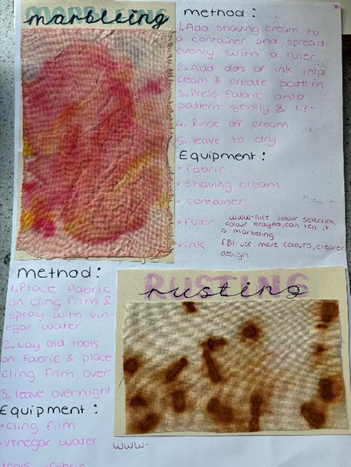 MARBLING
marbleing
method:
1. Add shaving cream to
a container and spread
evenly with a ruler
2. Add dots of ink into
cream & create pattern
3. Press fabric onto
pattern gently & lift
4. Rinse off cream
5. leave to dry
Equipment:
• fabric
• shaving cream
• container
• ruler
• ink
WWW-nice colour selection,
colour stayed, can tell it
is marbling
EBI use more colours, clearer
design
method:
1. Place fabric
on cling film &
spray with vin-
egar water
2. Lay old tools
on fabric & place
cling film over
3. leave overnight
Equipment:
• cling film
• vinegar water
tools • fabric
RUSTING
rusting
WWW-